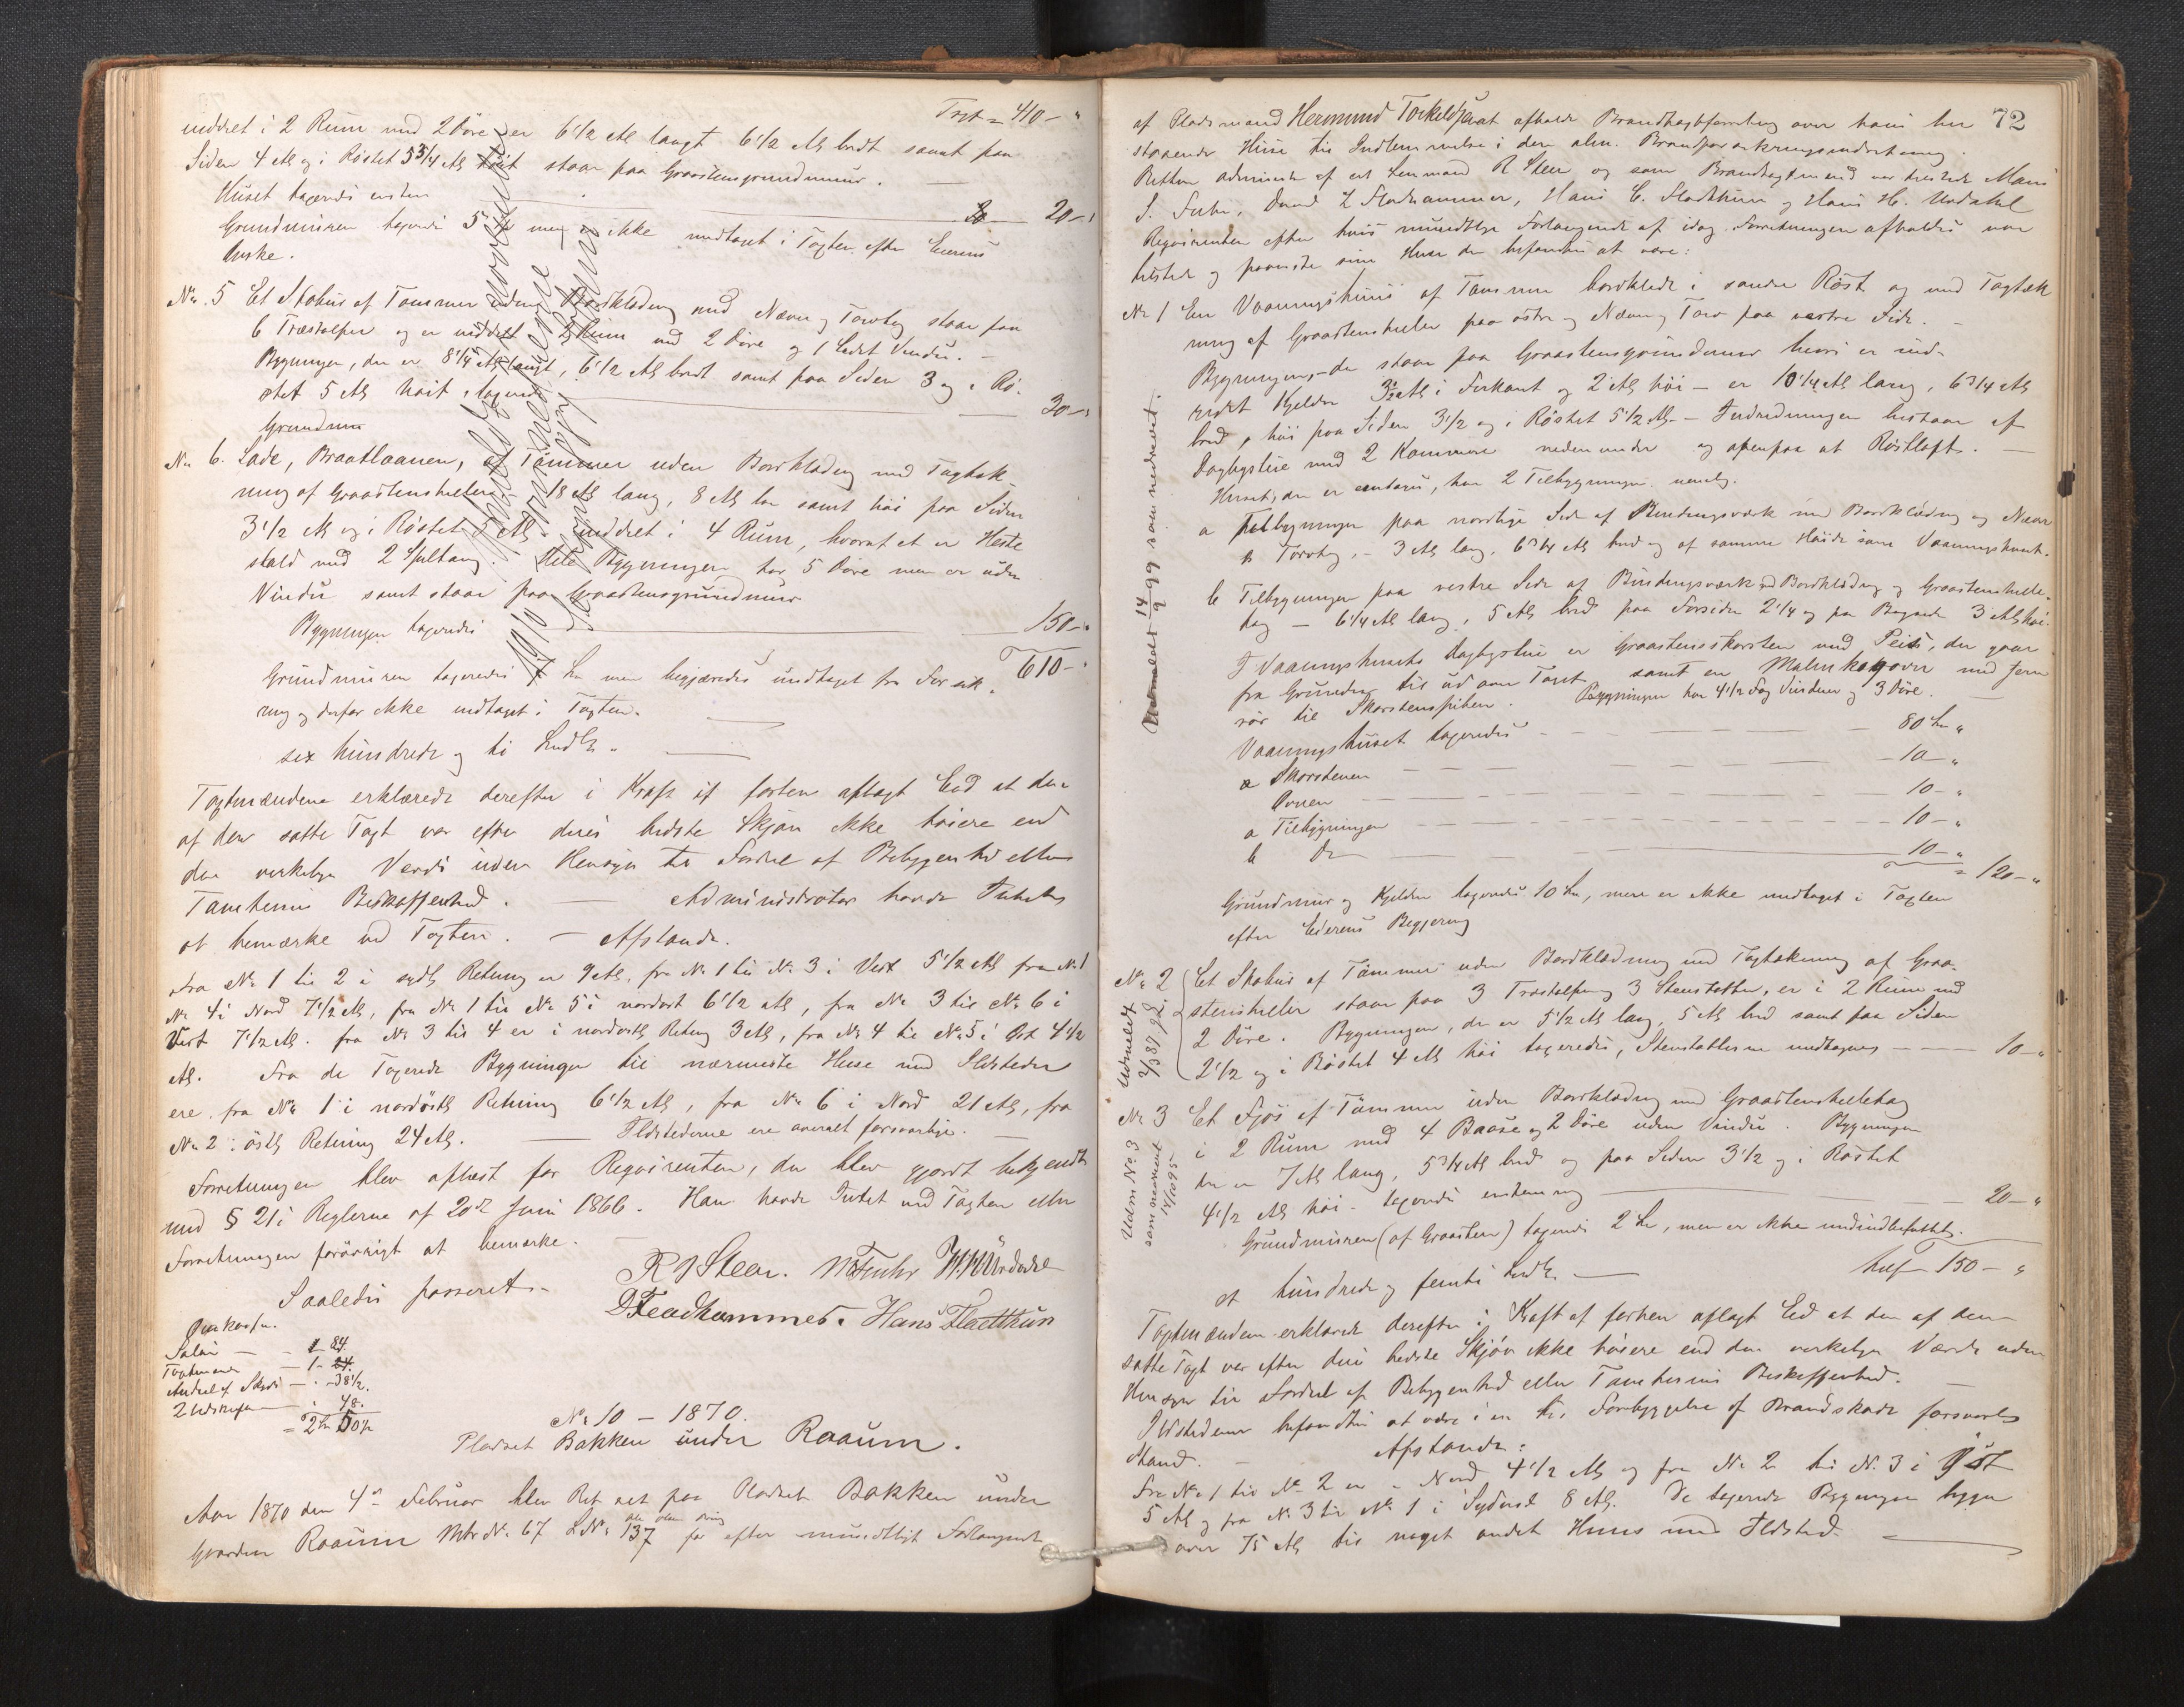 Trsp = 410 – "
inddelt i 2 Rum med 2 Döre er 6 1/2 Al langt 6 1/2 Al bredt samt paa
Siden 4 Al og i Röstet 5 3/4 Al höit staar paa Graastensgrundmuur.
Huset taxeredes enstem 20 – "
Grundmuren taxeredes 5 men er ikke medtaget i Taxten efter Eierens
Ønske.
No. 5 Et Skohus af Tømmer uden Bordklædning med Næver og Torvtag staar paa
6 Træstolper og er inddelt 2 Rum med 2 Döre og 1 Vindu. –
Bygningen, der er 8 1/4 Al langt, 6 1/2 Al bredt samt paa Siden 3 og i Rö-
stet 5 Al höit, taxeredes 30 – "
Grundmu
No 6. Lade, Braatlaanen, af Tömmer uden Bordklædning med Tagtæk-
ning af Graastensheller. 18 Al lang, 8 Al br samt höi paa Siden
3 1/2 Al og i Röstet 5 Al – inddelt i 4 Rum, hvoraf et er Heste
stald med 2 Spiltaug. Hele Bygningen har 5 Döre men er uden
Vindu samt staar paa Graastensgrundmuur
Bygningen taxeredes 150 – "
610 – "
Grundmuren taxeredes 7 men begjæredes undtaget fra Forsik-
ring og derfor ikke medtaget i Taxten.
sex hundrede og ti
Taxtmændene erklærede derefter i Kraft af forhen aflagt Eed at den
af dem satte Taxt var efter deres bedste Skjön ikke höiere end
den virkelige Verdi uden Hensyn til Fordel af Beliggenhed eller
Tomtens Beskaffenhed. – Administrator havde Intet
at bemærke ved Taxten. – Afstande.
Fra No 1 til 2 i sydlig Retning er 9 Al, fra No 1 til No 3 i Vest 5 1/2 Al fra No 1
No 4 i Nord 7 1/2 Al, fra No 1 til No 5 i nordost 6 1/2 Al, fra No 3 til No 6 i
Vest 7 1/2 Al. fra No 3 til 4 er i nordostlig Retning 3 Al, fra No 4 til No 5 i Öst 4 1/2
Al. Fra de Taxerede Bygninger til nærmeste Huse med Ildsteder
ere fra No 1 i nordöstlig Retning 6 1/2 Al, fra No 6 i Nord 21 Al, fra
No 2 i östlig Retning 24 Al. – Ildstederne ere overalt forsvarlige. –
Forretningen blev oplæst for Reqvirenten, der blev gjordt bekjendt
med § 21 i Reglerne af 20de Juni 1866. Han havde Intet ved Taxten eller
Forretningen forövrigt at bemærke.
Saaledes passeret.
R Steen. M Fuhr H. H Urdahl
D Fladhammer. Hans Flatthun
Omkostn.
Salær – 1 – 84
Taxtmænd – 1 – 24
Andeel af Skyds – " – 38 1/2
2 Udskrifter – " 48.
= 2 50
No 10 – 1870.
Pladset Bakken under Raaum.
Aar 1870 den 4de Februar blev Ret sat paa Pladset Bakken under
Gaarden Raaum Mtr No. 67 L No 137 for efter mundtligt Forlangende
72
af Pladsmand Hermund Torkeldsen at afholde Brandtaxtforretning over hans her
staaende Huse til Indlemmelse i den alm. Brandforsikringsindretning.
Retten administr af cst Lensmand R Steen og som Brandtaxtmænd var tilstede Mons
S. Fuhr, David L Fladhammer, Hans E. Flatthun og Hans H. Urdahl
Reqvirenten efter hvis mundtlige Forlangende af idag Forretningen afholdes var
tilstede og paaviste sine Huse der befandtes at være:
No 1 En Vaaningshuus af Tömmer bordklædt i søndre Röst og med Tagtæk
ning af Graastensheller paa östre og Næver og Torv paa vestre Side. –
Bygningen, – der staar paa Graastensgrundmur hvori er ind-
redet Kjelder 3 1/2 Al i Firkant og 2 Al höi – er 10 1/4 Al lang, 6 3/4 Al
bred, höi paa Siden 3 1/2 og i Röstet 5 1/2 Al. – Indredningen bestaar af
Dagligstue med 2 Kammere nedenunder og ovenpaa et Röstloft. –
Huset, der er, har 2 Tilbygninger nemlig.
a Tilbygningen paa nordlige Side af Bindingsværk med Bordklædning og Næver
& Torvtag, – 3 Al lang, 6 3/4 Al bred og af samme Höide som Vaaningshuset.
b Tilbygningen paa vestre Side af Bindingsværk med Bordklædning og Graastenshelle-
tag – 6 1/4 Al lang, 5 Al bred paa Forsiden 2 1/4 og paa Bagside 3 Al höi.
I Vaaningshusets Dagligstue er Graastensskorsten med Peis, der gaar
fra Grunden til ud over Taget, samt en Malmkogovn med Jern
rör til Skorstenspiben. Bygningen har 4 1/2 Fag Vinduer og 3 Döre.
Vaaningshuset taxeredes 80 "
Skorstenen – 10 – "
Ovnen – 10 – "
a Tilbygningen – 10 – "
b Do – 10 – "
= 120 – "
Grundmur og Kjelder taxeredes 10, men er ikke medtaget i Taxten
efter Eierens Begjæring
No 2 Et Skohus af Tömmer uden Bordklædning med Tagtækning af Graa-
stensheller staar paa 3 Træstolper og 3 Stenstötter, er i 2 Rum med
2 Döre. Bygningen, der er 5 1/2 Al lang, 5 Al bred samt paa Siden
2 1/2 og i Röstet 4 Al höi taxeredes, Stenstötterne undtages – 10 – "
No 3 Et Fjös af Tömmer uden Bordklædning med Graastenshelletag
i 2 Rum med 4 Baase og 2 Döre uden Vindu. Bygningen
der er 7 Al lang, 5 3/4 Al bred og paa Siden 3 1/2 og i Röstet
4 1/2 Al höi – taxeredes enstemmig 20 – "
Grundmuren (af Graasten) taxeredes 2, men er ikke medindbefattet.
150 – "
et hundrede og femti
Taxtmændene erklærede derefter i Kraft af forhen aflagt Eed at den af dem
satte Taxt var efter deres bedste Skjön ikke höiere end den virkelige Værdi uden
Hensyn til Fordel af Beliggenhed eller Tomtens Beskaffenhed. –
Ildstederne befandtes at være i en til Forebyggelse af Brandskade forsvarlig
Stand. – Afstande:
Fra No 1 til No 2 er i Nord 4 1/2 Al og fra No 2 til No. 3 i Öst
5 Al og fra No 3 til No 1 i Sydvest 8 Al. De taxerede Bygninger ligger
over 75 Al til noget andet Huus med Ildsted. –
Udmeldt 14/9 99 som nedrevet.
Udmeldt 2/3 87
Udm No. 3 som nedrevet 14/10 95